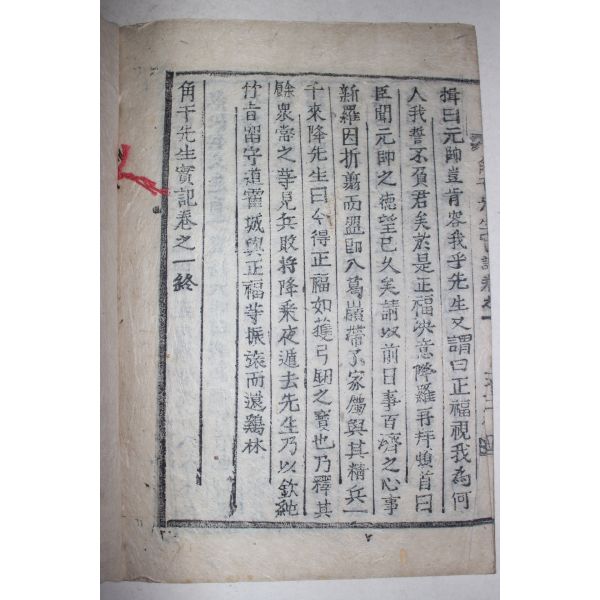 揖曰元帥豈肯容我乎先生又謂曰正福視我為何
人我誓不負君矣於是正福決意降羅再拜頓首曰
臣聞元帥之德望已久矣請以前日事百濟之心事
新羅因折剪而盟即入葛巖帶了家屬與其精兵一
千來降先生曰今得正福如獲弓劒之寶也乃釋其
餘衆常之等見兵敗將降乘夜遁去先生乃以欽純
竹旨留守道藿城與正福等振旅而還鷄林
角干先生實記卷之一終